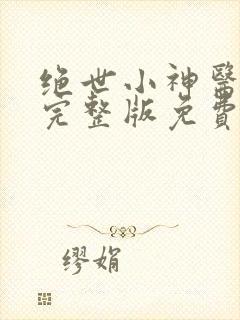 绝世小神醫
完整版免費
缪娟